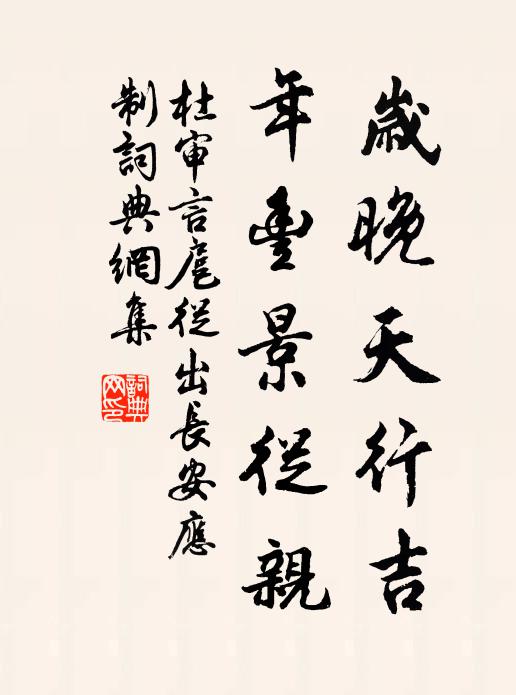 歲晚天行吉
年豐景從親
杜審言扈從出長安應
制詞典網集
詞典網印